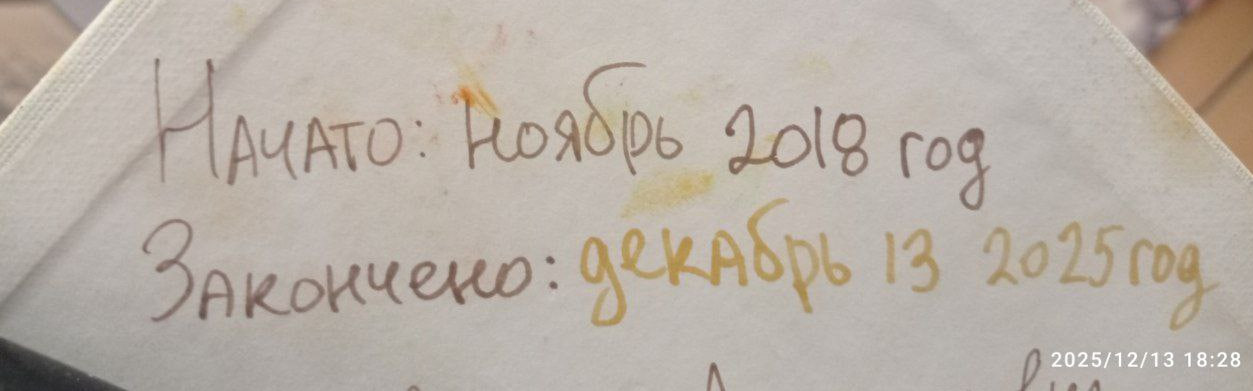 Начато: ноябрь 2018 год
Закончено: декабрь 13 2025 год
2025/12/13 18:28